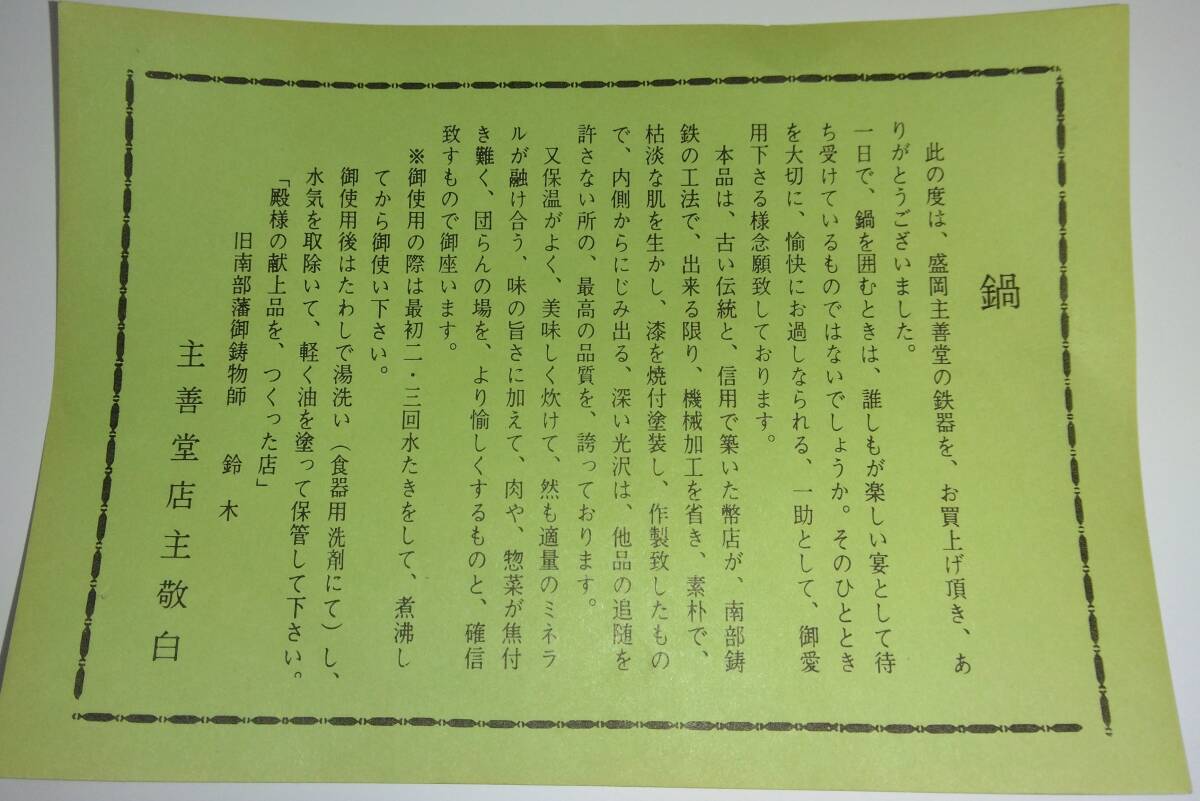 鍋
此の度は、盛岡主善堂の鉄器を、お買上げ頂き、あ
りがとうございました。
一日で、鍋を囲むときは、誰しもが楽しい宴として待
ち受けているものではないでしょうか。そのひととき
を大切に、愉快にお過しなられる、一助として、御愛
用下さる様念願致しております。
本品は、古い伝統と、信用で築いた幣店が、南部鋳
鉄の工法で、出来る限り、機械加工を省き、素朴で、
枯淡な肌を生かし、漆を焼付塗装し、作製致したもの
で、内側からにじみ出る、深い光沢は、他品の追随を
許さない所の、最高の品質を、誇っております。
又保温がよく、美味しく炊けて、然も適量のミネラ
ルが融け合う、味の旨さに加えて、肉や、惣菜が焦付
き難く、団らんの場を、より愉しくするものと、確信
致すもので御座います。
※御使用の際は最初二・三回水たきをして、煮沸し
てから御使い下さい。
御使用後はたわしで湯洗い（食器用洗剤にて）し、
水気を取除いて、軽く油を塗って保管して下さい。
「殿様の献上品を、つくった店」
旧南部藩御鋳物師　鈴木
主善堂店主敬白